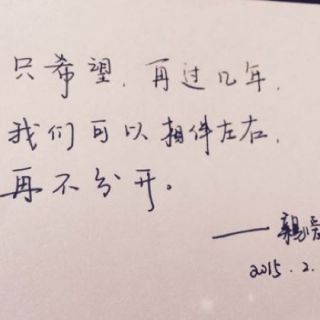 只希望,再过几年,
我们可以相伴左右,
再不分开。
2015.2.